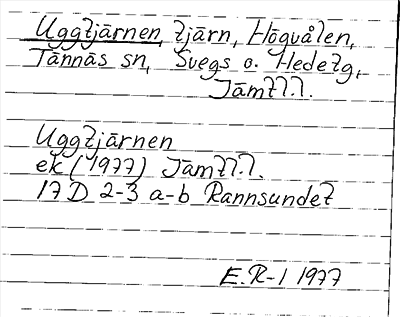 Uggtjärnen, tjärn, Högvålen,
Tännäs sn, Svegs o. Hedetg,
Jämtl.l.
Uggtjärnen
ek (1977) Jämtl.l.
17D 2-3 a-b Rannsundet
E.R-l 1977